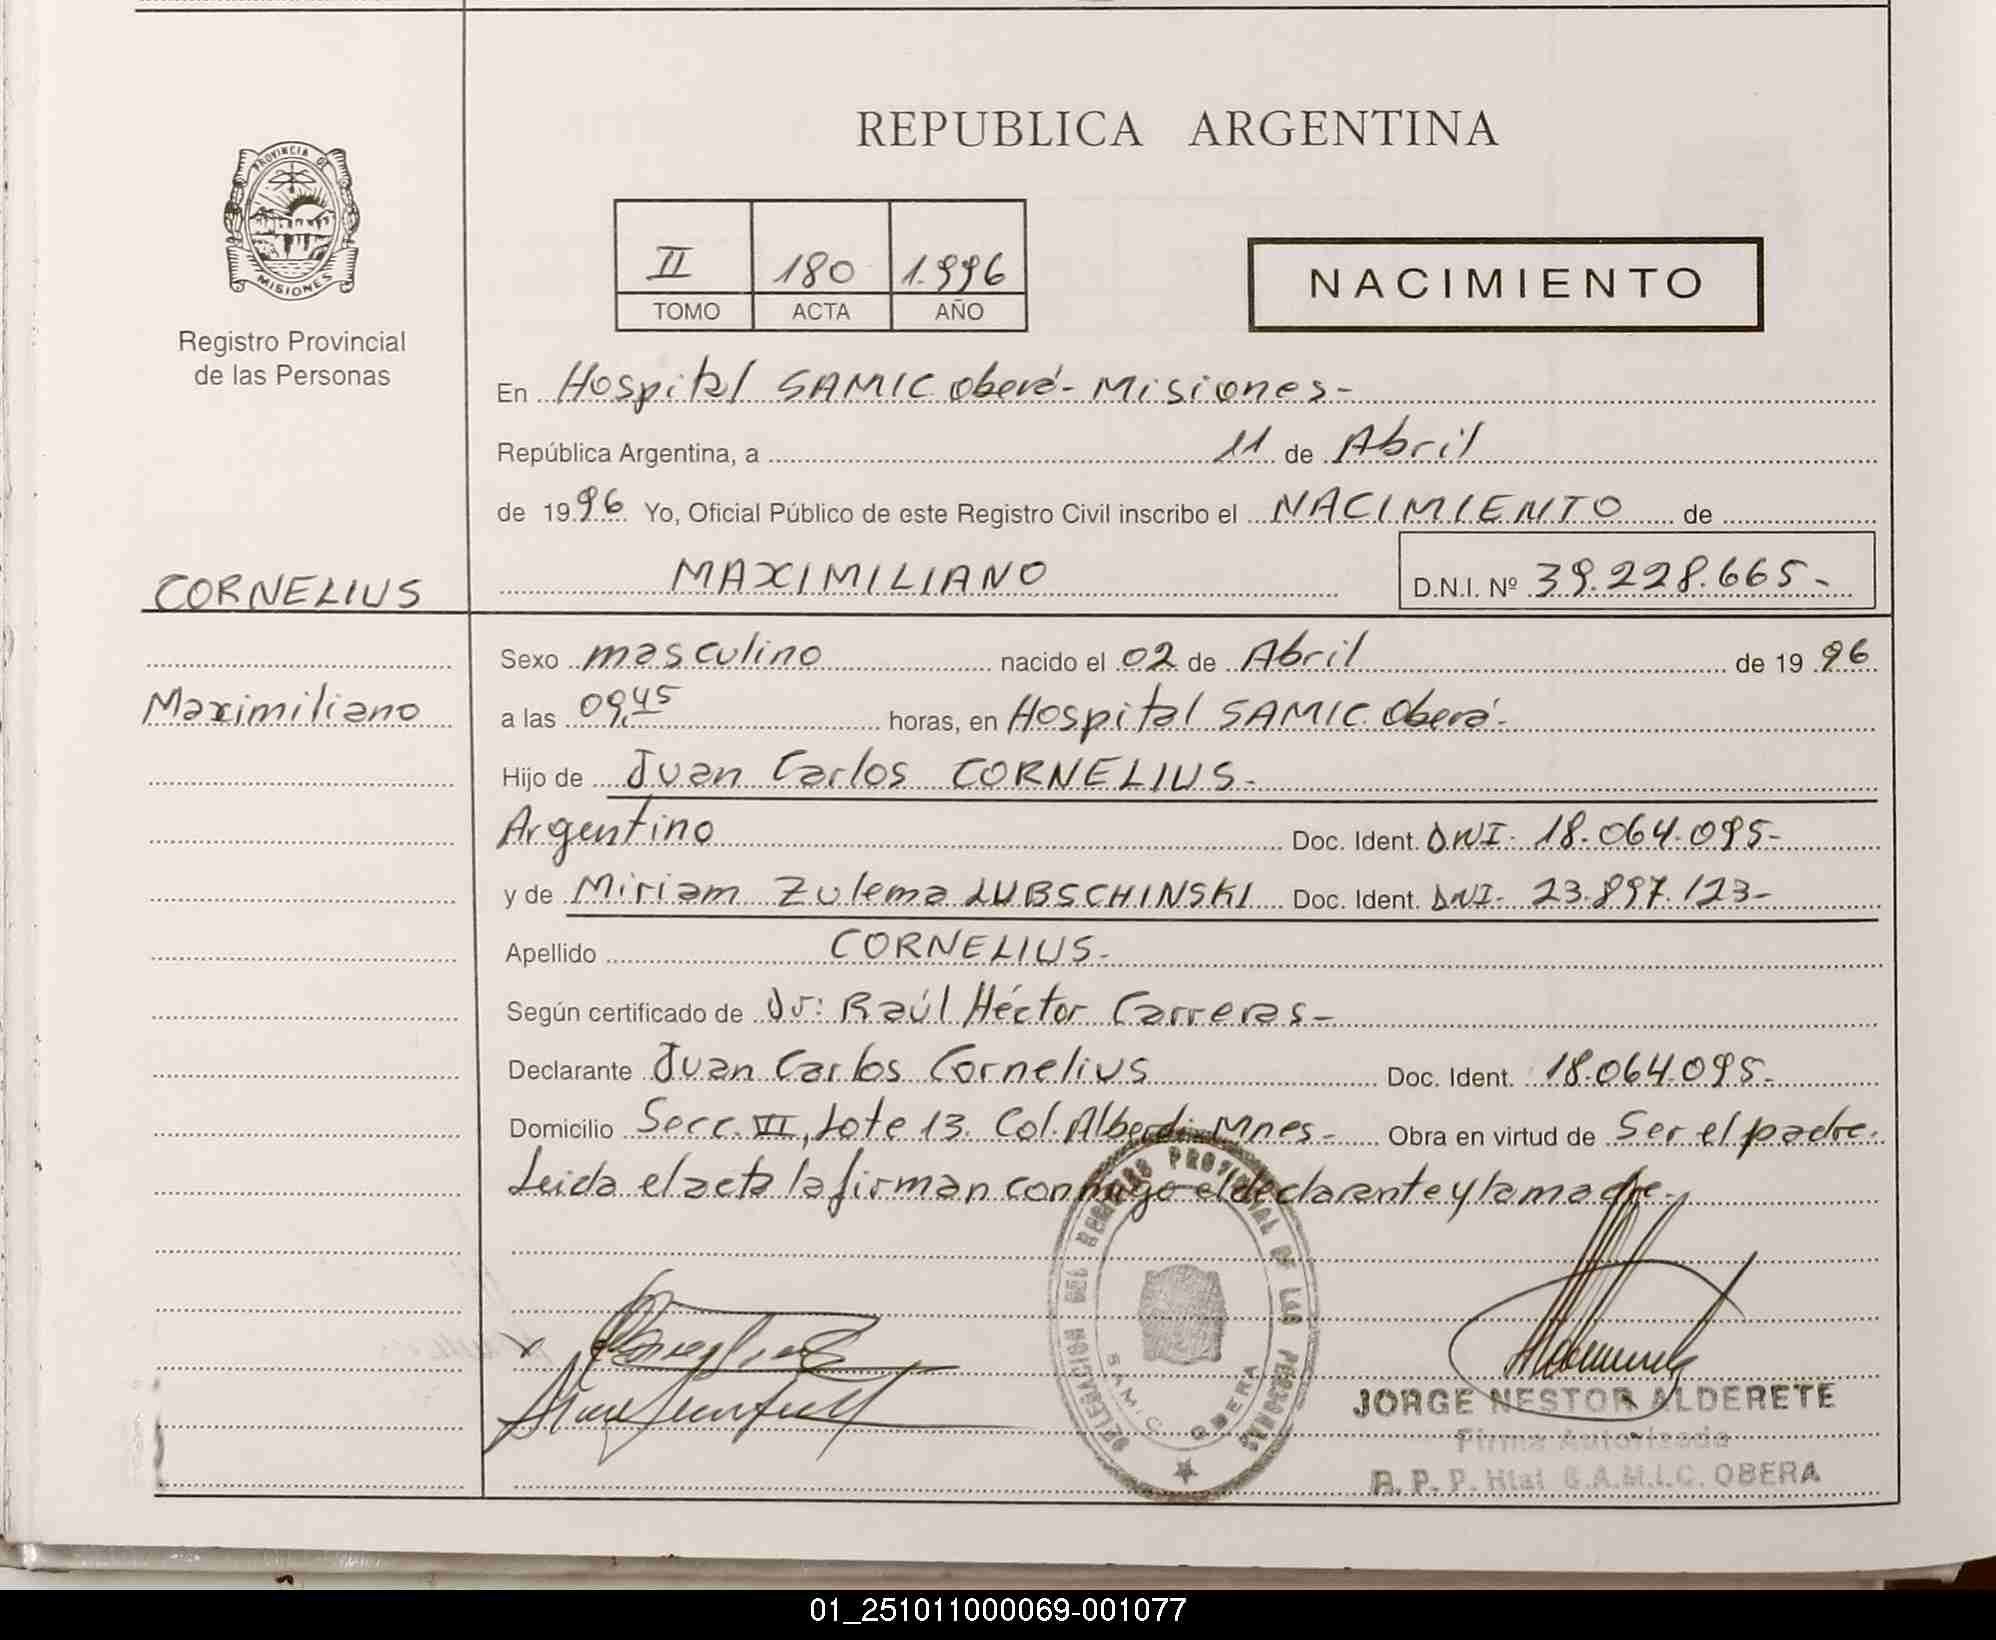 REPUBLICA ARGENTINA
PROVINCIA DE
MISIONES
Registro Provincial
de las Personas
II 180 1.996
TOMO ACTA AÑO
NACIMIENTO
En Hospital SAMIC Oberá - Misiones -
República Argentina, a 11 de Abril
de 1996 Yo, Oficial Público de este Registro Civil inscribo el NACIMIENTO de
CORNELIUS
MAXIMILIANO D.N.I. Nº 39.228.665-
Sexo masculino nacido el 02 de Abril de 19 96
Maximiliano
a las 09,45 horas, en Hospital SAMIC. Oberá-
Hijo de Juan Carlos CORNELIUS-
Argentino Doc. Ident. DNI- 18.064.095-
y de Miriam Zulema LUBSCHINSKI Doc. Ident. DNI- 23.897.123-
Apellido CORNELIUS-
Según certificado de Dr: Raúl Héctor Carreras-
Declarante Juan Carlos Cornelius Doc. Ident. 18.064.095-
Domicilio Secc. VII, Lote 13. Col. Alberdi- Mnes- Obra en virtud de Ser el padre.
Leida el acta la firman conmigo el declarante y la madre-
DELEGACION DEL REGISTRO PROVINCIAL DE LAS PERSONAS
SAMIC OBERA
JORGE NESTOR ALDERETE
Firma Autorizada
R. P. P. Htal S.A.M.I.C. OBERA
01_251011000069-001077